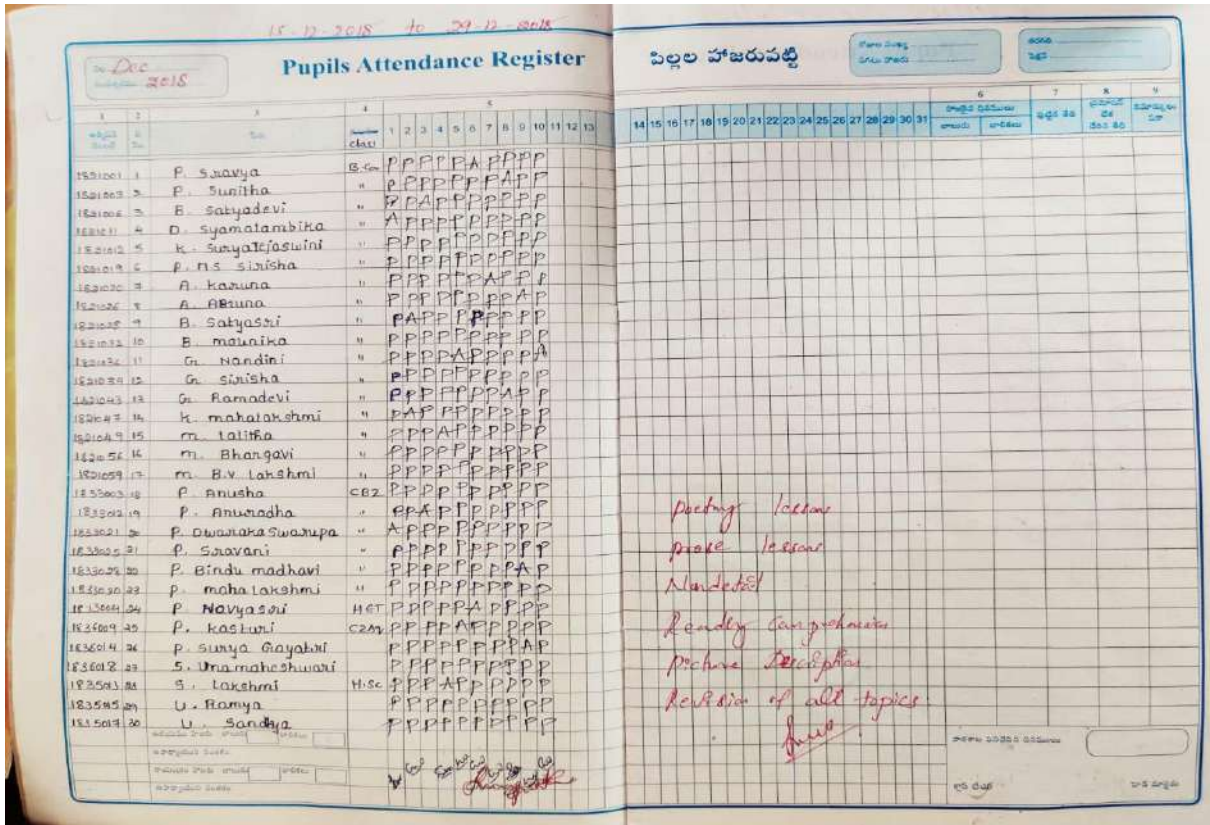 15-12-2018 to 29-12-2018
Dec
2018
Pupils Attendance Register
పిల్లల హాజరుపట్టి
1 2 3 4 5 6 7 8 9
class 1 2 3 4 5 6 7 8 9 10 11 12 13 14 15 16 17 18 19 20 21 22 23 24 25 26 27 28 29 30 31
1821001 1 P. Sravya B.Com P P P P P A P P P P
1821003 2 P. Sunitha " P P P P P P P A P P
1821006 3 B. Satyadevi " P P A P P P P P P P
1821011 4 D. Syamalambika " A P P P P P P P P P
1821012 5 K. Suryatejaswini " P P P P P P P P P P
1821019 6 P. NS Sirisha " P P P P P P P P P P
1821020 7 A. Karuna " P P P P P P A P P P
1821026 8 A. Aruna " P P P P P P P P A P
1821028 9 B. Satyasri " P A P P P P P P P P
1821032 10 B. mounika " P P P P P P P P P P
1821036 11 G. Nandini " P P P P A P P P P A
1821039 12 G. Sirisha " P P P P P P P P P P
1821043 13 G. Ramadevi " P P P P P P P A P P
1821047 14 K. mahalakshmi " P A P P P P P P P P
1821049 15 m. Lalitha " P P P A P P P P P P
1821056 16 m. Bhargavi " P P P P P P P P P P
1821059 17 m. B.V Lakshmi " P P P P P P P P P P
1833003 18 P. Anusha CBZ P P P P P P P P P P
1833012 19 P. Anuradha " P P A P P P P P P P
1833021 20 P. Dwaraka Swarupa " A P P P P P P P P P
1833025 21 P. Sravani " P P P P P P P P P P
1833028 22 P. Bindu madhavi " P P P P P P P P A P
1833030 23 P. maha Lakshmi " P P P P P P P P P P
24 P. Navyasri HGT P P P P P A P P P P
1836009 25 P. Kasturi CZAq P P P P A P P P P P
1836014 26 P. Surya Gayatri P P P P P P P P A P
1836018 27 S. Umamaheshwari P P P P P P P P P P
1835013 28 S. Lakshmi H.Sc P P P A P P P P P P
1835015 29 U. Ramya P P P P P P P P P P
1835017 30 U. Sandya P P P P P P P P P P
poetry lessons
prose lessons
Nondetail
Reading Comprehension
picture Description
Revision of all topics